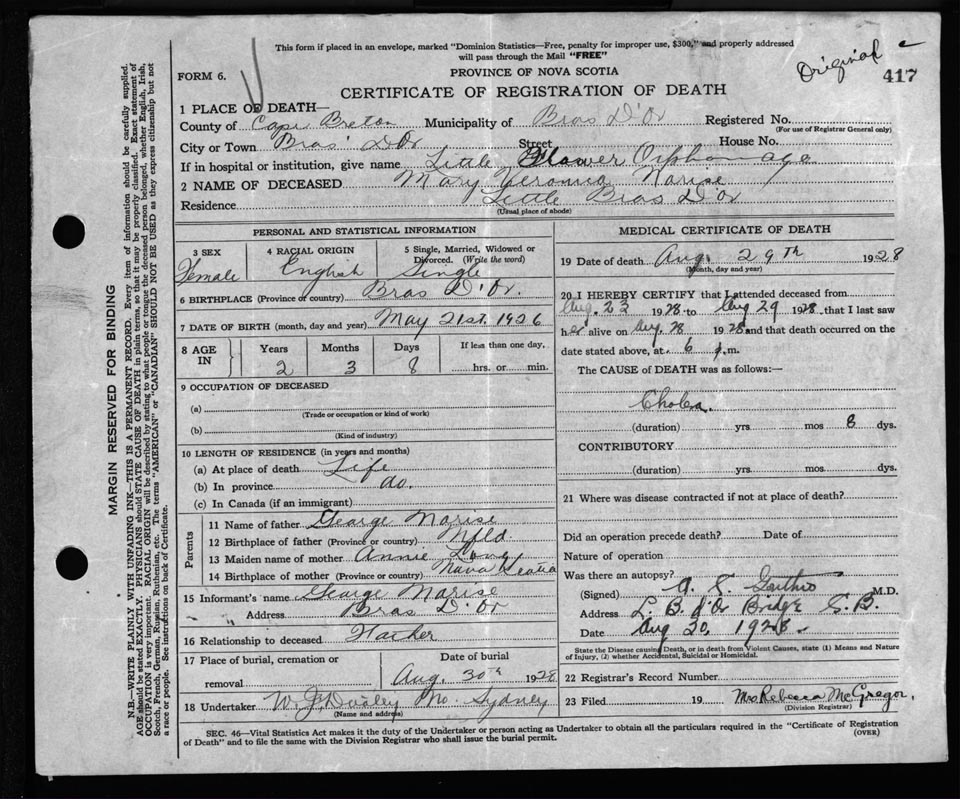 This form if placed in an envelope, marked "Dominion Statistics—Free, penalty for improper use, $300," and properly addressed
will pass through the Mail "FREE"
Original
417
FORM 6.
PROVINCE OF NOVA SCOTIA
CERTIFICATE OF REGISTRATION OF DEATH
1 PLACE OF DEATH—
County of Cape Breton Municipality of Bras D'Or Registered No.
(For use of Registrar General only)
City or Town Bras D'Or Street House No.
If in hospital or institution, give name Little Flower Orphanage
2 NAME OF DECEASED Mary Veronica Narise
Residence Little Bras D'Or
(Usual place of abode)
PERSONAL AND STATISTICAL INFORMATION
3 SEX 4 RACIAL ORIGIN 5 Single, Married, Widowed or
Divorced. (Write the word)
Female English Single
6 BIRTHPLACE (Province or country) Bras D'Or.
7 DATE OF BIRTH (month, day and year) May 21st. 1926
8 AGE IN Years Months Days If less than one day,
2 3 8 hrs. or min.
9 OCCUPATION OF DECEASED
(a)
(Trade or occupation or kind of work)
(b)
(Kind of industry)
10 LENGTH OF RESIDENCE (in years and months)
(a) At place of death Life
(b) In province do.
(c) In Canada (if an immigrant)
Parents
11 Name of father George Narise
12 Birthplace of father (Province or country) Nfld.
13 Maiden name of mother Annie Long
14 Birthplace of mother (Province or country) Nova Scotia
15 Informant's name George Narise
" Address Bras D'Or
16 Relationship to deceased Father
17 Place of burial, cremation or Date of burial
removal Aug. 30th 1928
18 Undertaker W. J. Dooley No Sydney
(Name and address)
MEDICAL CERTIFICATE OF DEATH
19 Date of death Aug. 29th 1928
(Month, day and year)
20 I HEREBY CERTIFY that I attended deceased from
Aug. 23 1928 to Aug 29 1928, that I last saw
her alive on Aug. 28 1928 and that death occurred on the
date stated above, at 6 .m.
The CAUSE OF DEATH was as follows:—
Cholera
(duration) yrs. mos 8 dys.
CONTRIBUTORY
(duration) yrs. mos. dys.
21 Where was disease contracted if not at place of death?
Did an operation precede death? Date of
Nature of operation
Was there an autopsy?
(Signed) M.D.
Address L. B. d'Or Bridge C.B.
Date Aug 20, 1928.
State the Disease causing Death, or in death from Violent Causes, state (1) Means and Nature
of Injury, (2) whether Accidental, Suicidal or Homicidal.
22 Registrar's Record Number
23 Filed 19 Mrs Rebecca McGregor,
(Division Registrar)
SEC. 46—Vital Statistics Act makes it the duty of the Undertaker or person acting as Undertaker to obtain all the particulars required in the "Certificate of Registration
of Death" and to file the same with the Division Registrar who shall issue the burial permit.
(OVER)
MARGIN RESERVED FOR BINDING
N.B.—WRITE PLAINLY WITH UNFADING INK—THIS IS A PERMANENT RECORD. Every item of information should be carefully supplied.
AGE should be stated EXACTLY. PHYSICIANS should STATE CAUSE OF DEATH in plain terms, so that it may be properly classified. Exact statement of
OCCUPATION is very important. RACIAL ORIGIN will be described by stating to what people or tongue the deceased person belonged, whether English, Irish,
Scotch, French, German, Russian, Ruthenian, etc. The terms "AMERICAN" or "CANADIAN" SHOULD NOT BE USED as they express citizenship but not
a race or people. See instructions on back of Certificate.